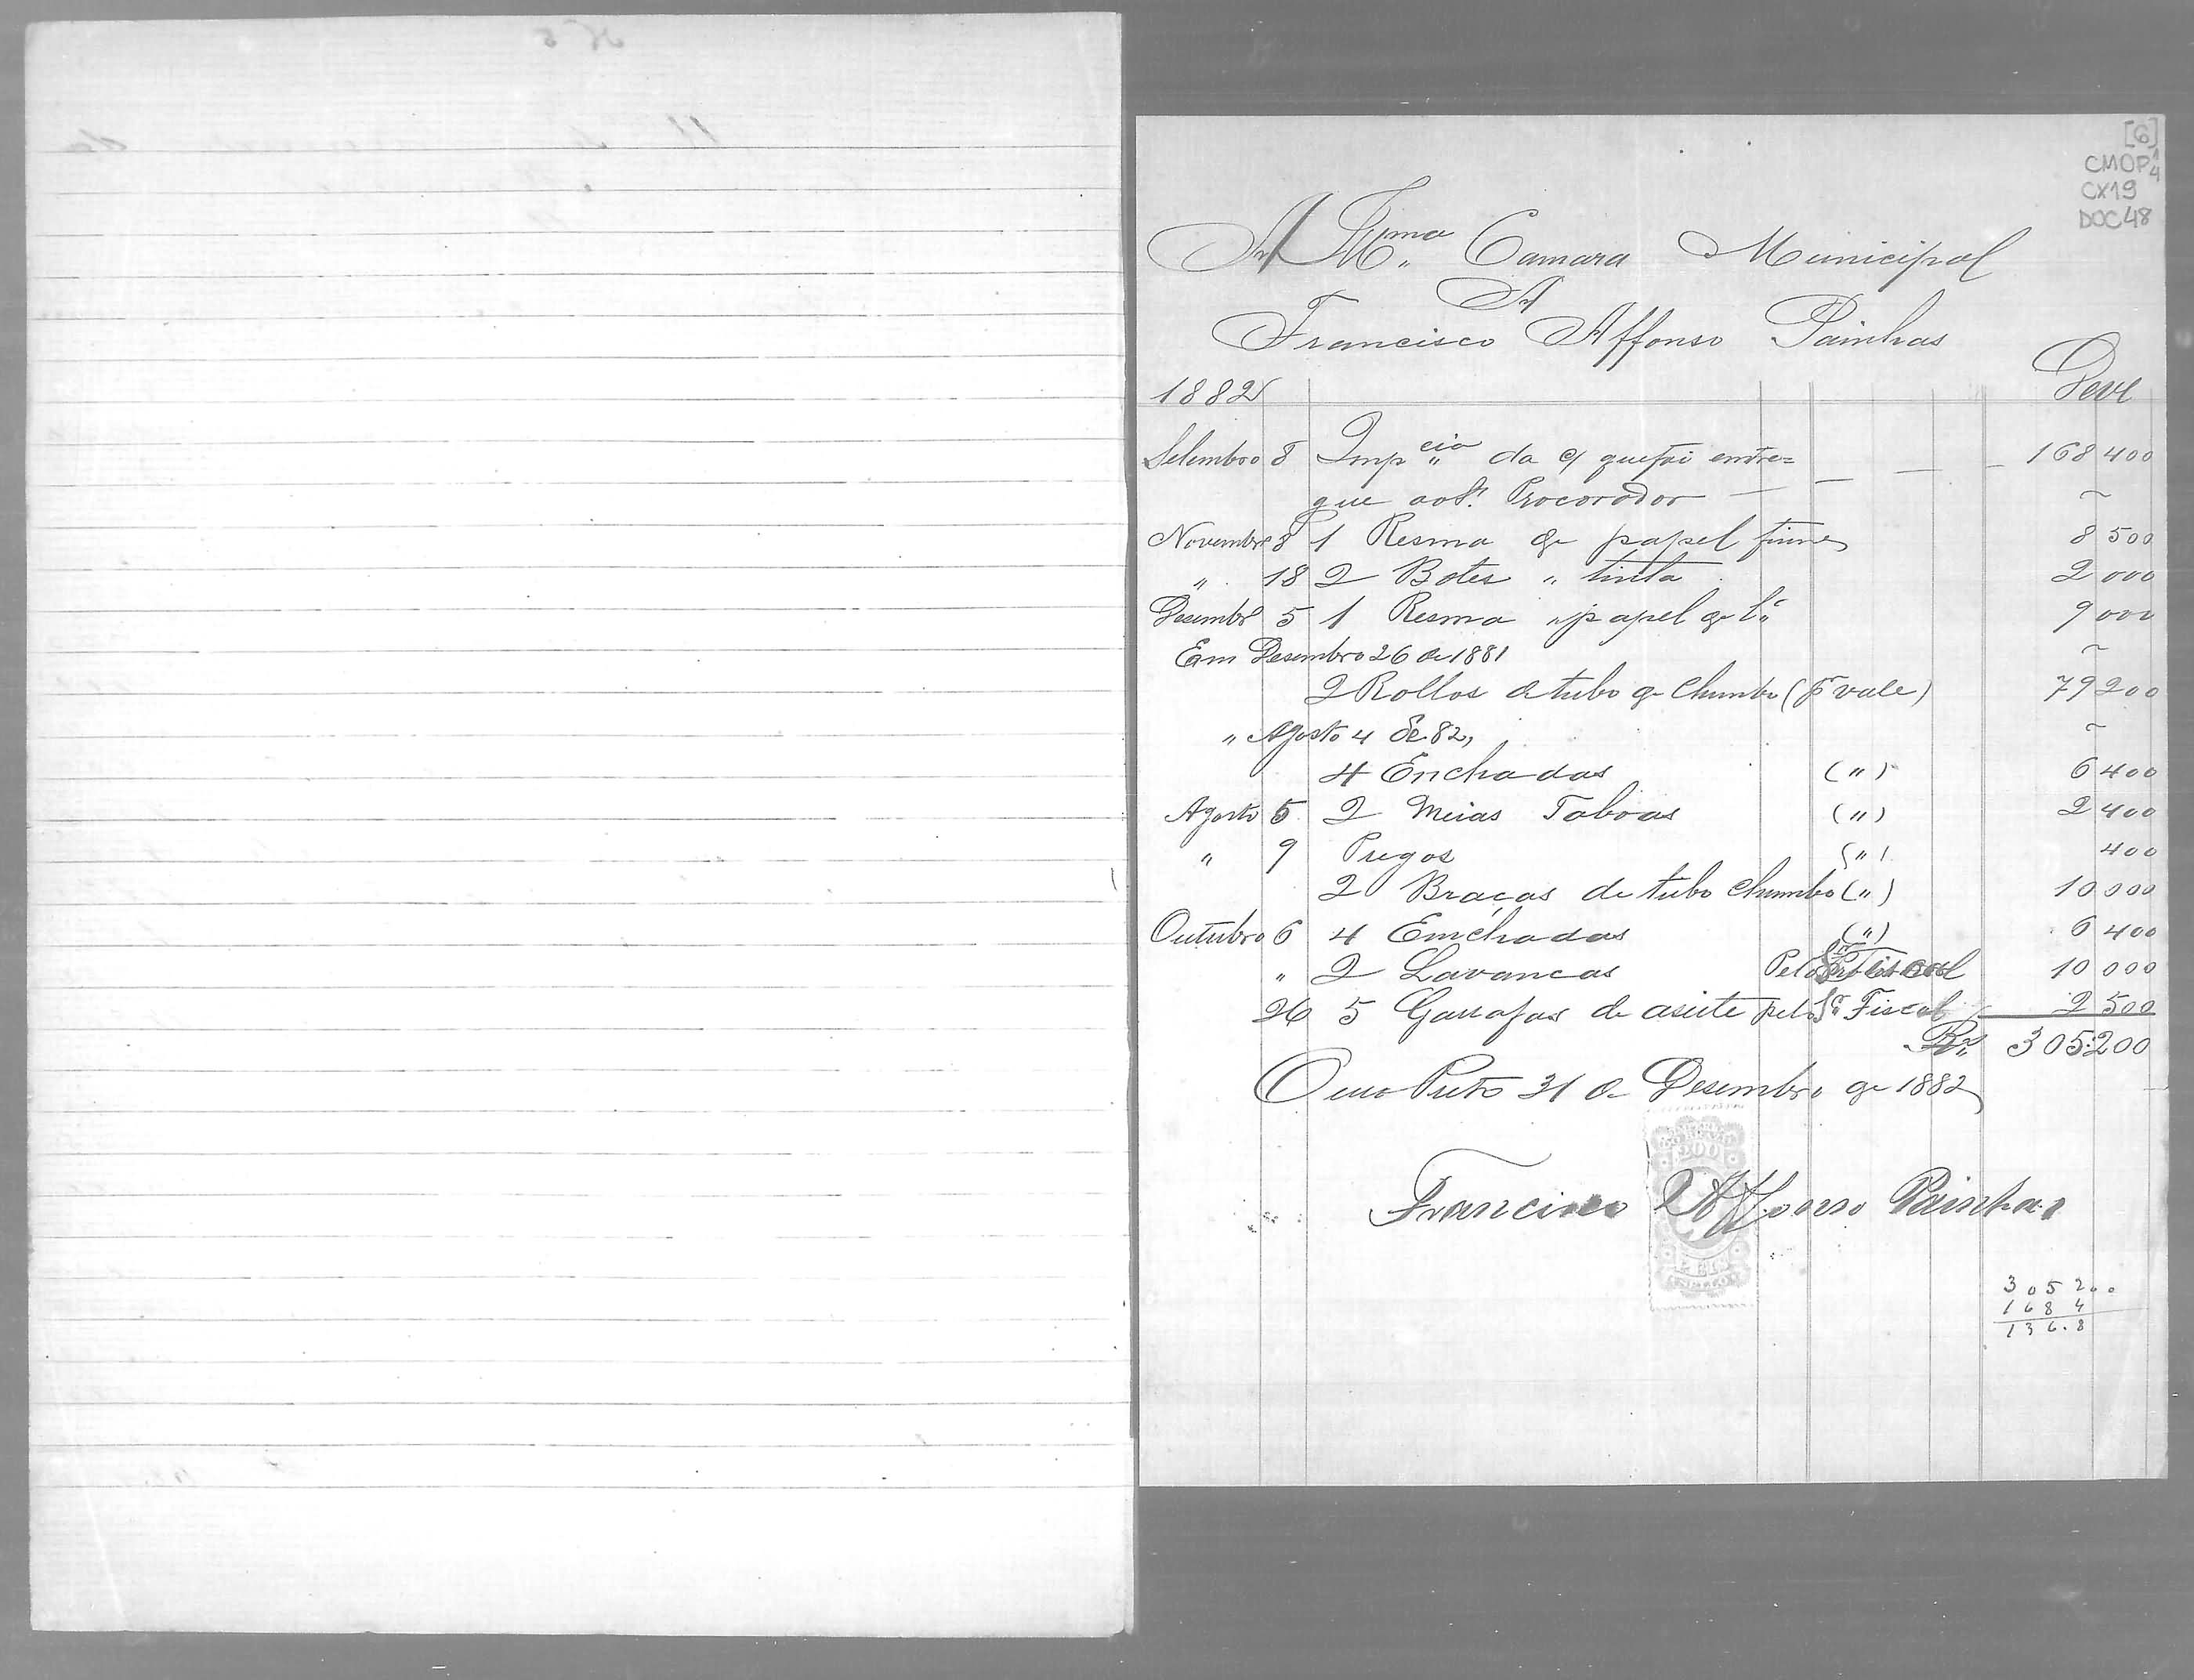 [6]
CMOP 1/4
CX19
DOC 48
A Illma Camara Municipal
A
Francisco Affonso Painhas
Deve
1882
Setembro 8 Impcia da c/ que foi entre= 168 400
gue ao Sr. Procorador
Novembro 8 1 Resma de papel fiume 8 500
" 18 2 Botes " tinta 2 000
Desembro 5 1 Resma " papel de la 9 000
Em Desembro 26 de 1881
2 Rollos de tubo de Chumbo (pr vale) 79 200
" Agosto 4 de 82,
4 Enchadas (") 6 400
Agosto 5 2 Meias Taboas (") 2 400
" 9 Pregos (") 400
2 Braças de tubo chumbo (") 10 000
Outubro 6 4 Emchadas (") 6 400
" 2 Lavancas Pelo Sr Fiscal 10 000
26 5 Garrafas de aseite pelo Sr Fiscal 2 500
Rs 305:200
Ouro Preto 31 de Desembro de 1882
200
REIS
Francisco Affonso Painhas
305 200
168 4
136.8